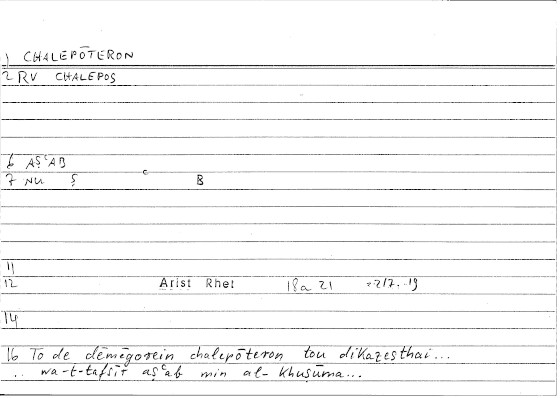 1 CHALEPŌTERON
2 RV CHALEPOS
6 AṢʿAB
7 NU Ṣ ʿ B
11
12 Arist Rhet 18a 21 = 217.19
14
16 To de dēmēgorein chalepōteron tou dikazesthai...
.. wa-t-tafsīr aṣʿab min al-khuṣūma...